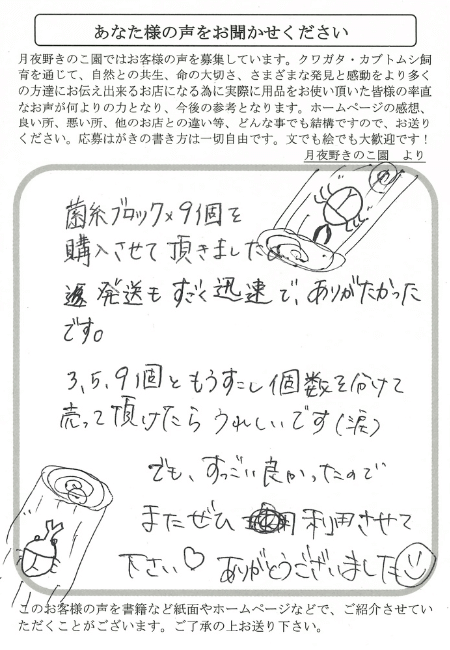 あなた様の声をお聞かせください
月夜野きのこ園ではお客様の声を募集しています。クワガタ・カブトムシ飼
育を通じて、自然との共生、命の大切さ、さまざまな発見と感動をより多く
の方達にお伝え出来るお店になる為に実際に用品をお使い頂いた皆様の率直
なお声が何よりの力となり、今後の参考となります。ホームページの感想、
良い所、悪い所、他のお店との違い等、どんな事でも結構ですので、お送り
ください。応募はがきの書き方は一切自由です。文でも絵でも大歓迎です！
月夜野きのこ園　より
菌糸ブロック×9個を
購入させて頂きました
発送もすごく迅速で、ありがたかった
です。
3、5、9個ともうすこし個数を分けて
売って頂けたらうれしいです(涙)
でも、すっごい良かったので
またぜひ利用させて
下さい♡ ありがとうございました
このお客様の声を書籍など紙面やホームページなどで、ご紹介させてい
ただくことがございます。ご了承の上お送り下さい。